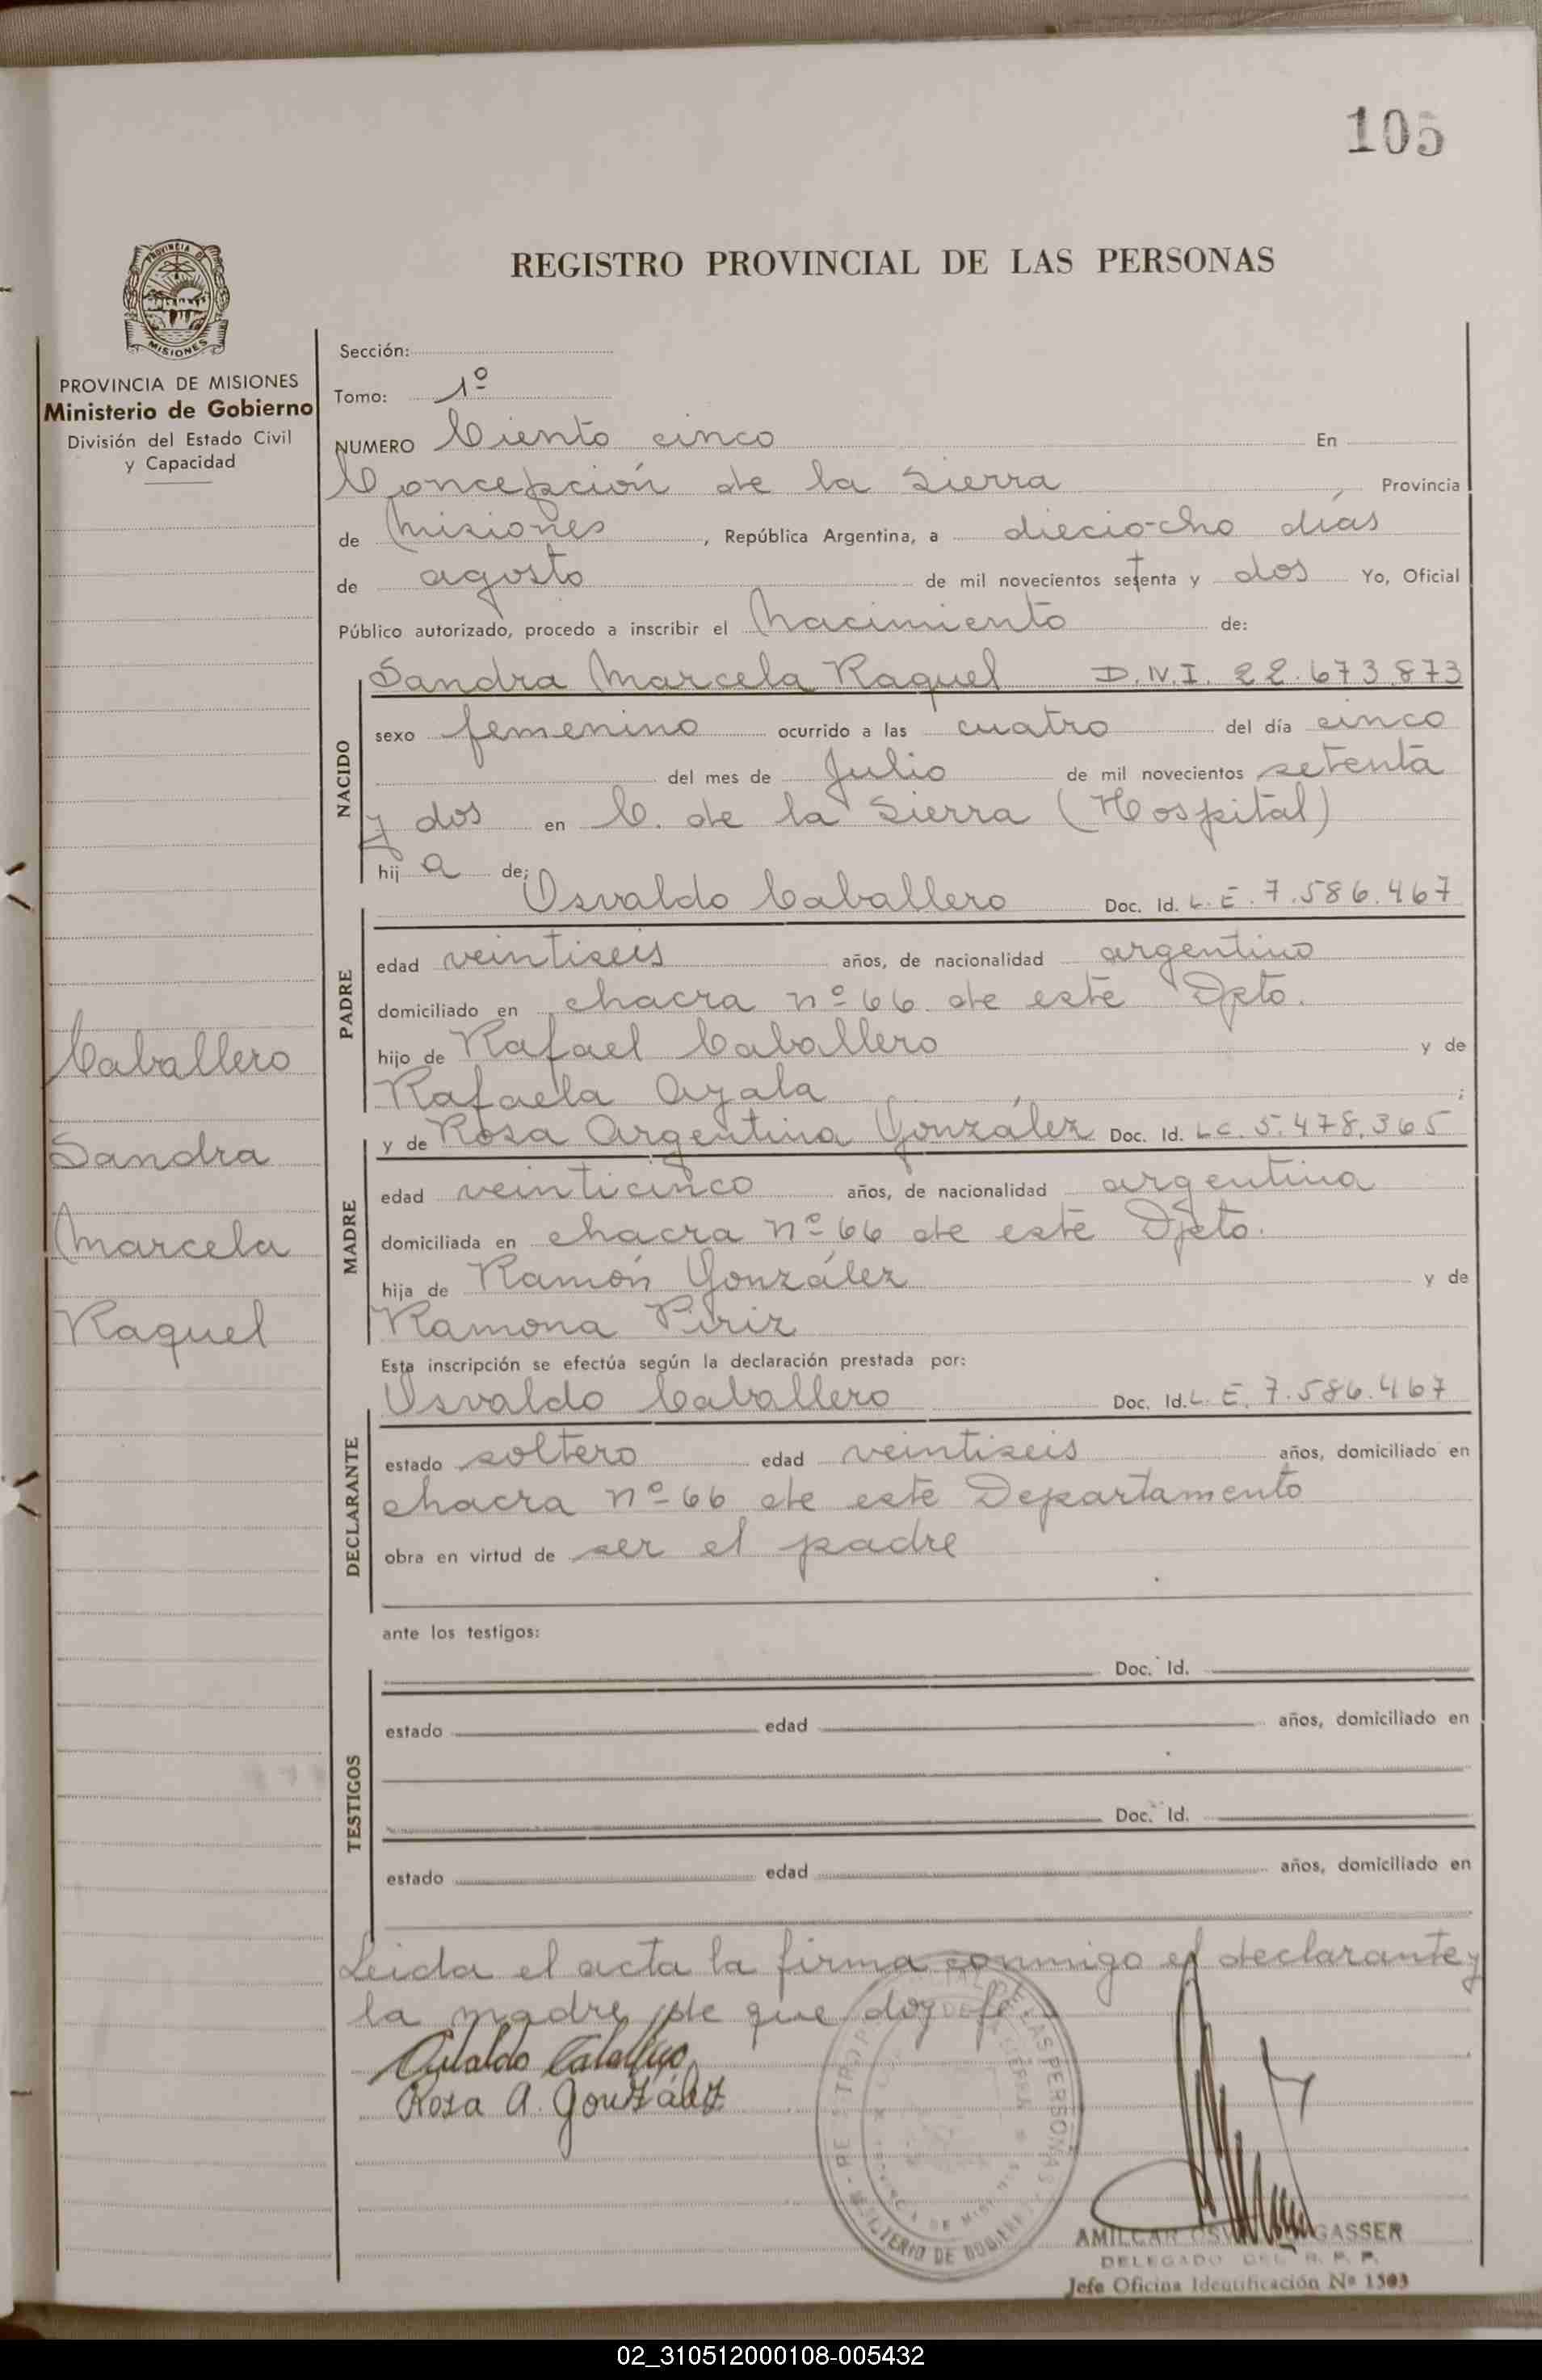 105
PROVINCIA DE
MISIONES
PROVINCIA DE MISIONES
Ministerio de Gobierno
División del Estado Civil
y Capacidad
Caballero
Sandra
Marcela
Raquel
REGISTRO PROVINCIAL DE LAS PERSONAS
Sección:
Tomo: 1º
NUMERO Ciento cinco En
Concepción de la Sierra, Provincia
de Misiones, República Argentina, a dieciocho días
de agosto de mil novecientos setenta y dos Yo, Oficial
Público autorizado, procedo a inscribir el Nacimiento de:
NACIDO
Sandra Marcela Raquel D.N.I. 22.673.873
sexo femenino ocurrido a las cuatro del día cinco
del mes de Julio de mil novecientos setenta
y dos en C. de la Sierra (Hospital)
hij a de;
PADRE
Osvaldo Caballero Doc. Id. L.E. 7.586.467
edad veintiseis años, de nacionalidad argentino
domiciliado en chacra nº 66 de este Dpto.
hijo de Rafael Caballero y de
Rafaela Ayala ;
MADRE
y de Rosa Argentina González Doc. Id. L.C. 5.478.365
edad veinticinco años, de nacionalidad argentina
domiciliada en chacra nº 66 de este Dpto.
hija de Ramón González y de
Ramona Piriz
Esta inscripción se efectúa según la declaración prestada por:
DECLARANTE
Osvaldo Caballero Doc. Id. L.E. 7.586.467
estado soltero edad veintiseis años, domiciliado en
chacra nº 66 de este Departamento
obra en virtud de ser el padre
ante los testigos:
TESTIGOS
Doc. Id.
estado edad años, domiciliado en
Doc. Id.
estado edad años, domiciliado en
Leida el acta la firma conmigo el declarante y
la madre, de que doy fe
Osvaldo Caballero
Rosa A. González
LAS PERSONAS
MINISTERIO DE GOBIERNO
AMILCAR GASSER
DELEGADO DEL R. P. P.
Jefe Oficina Identificación Nº 1503
02_310512000108-005432